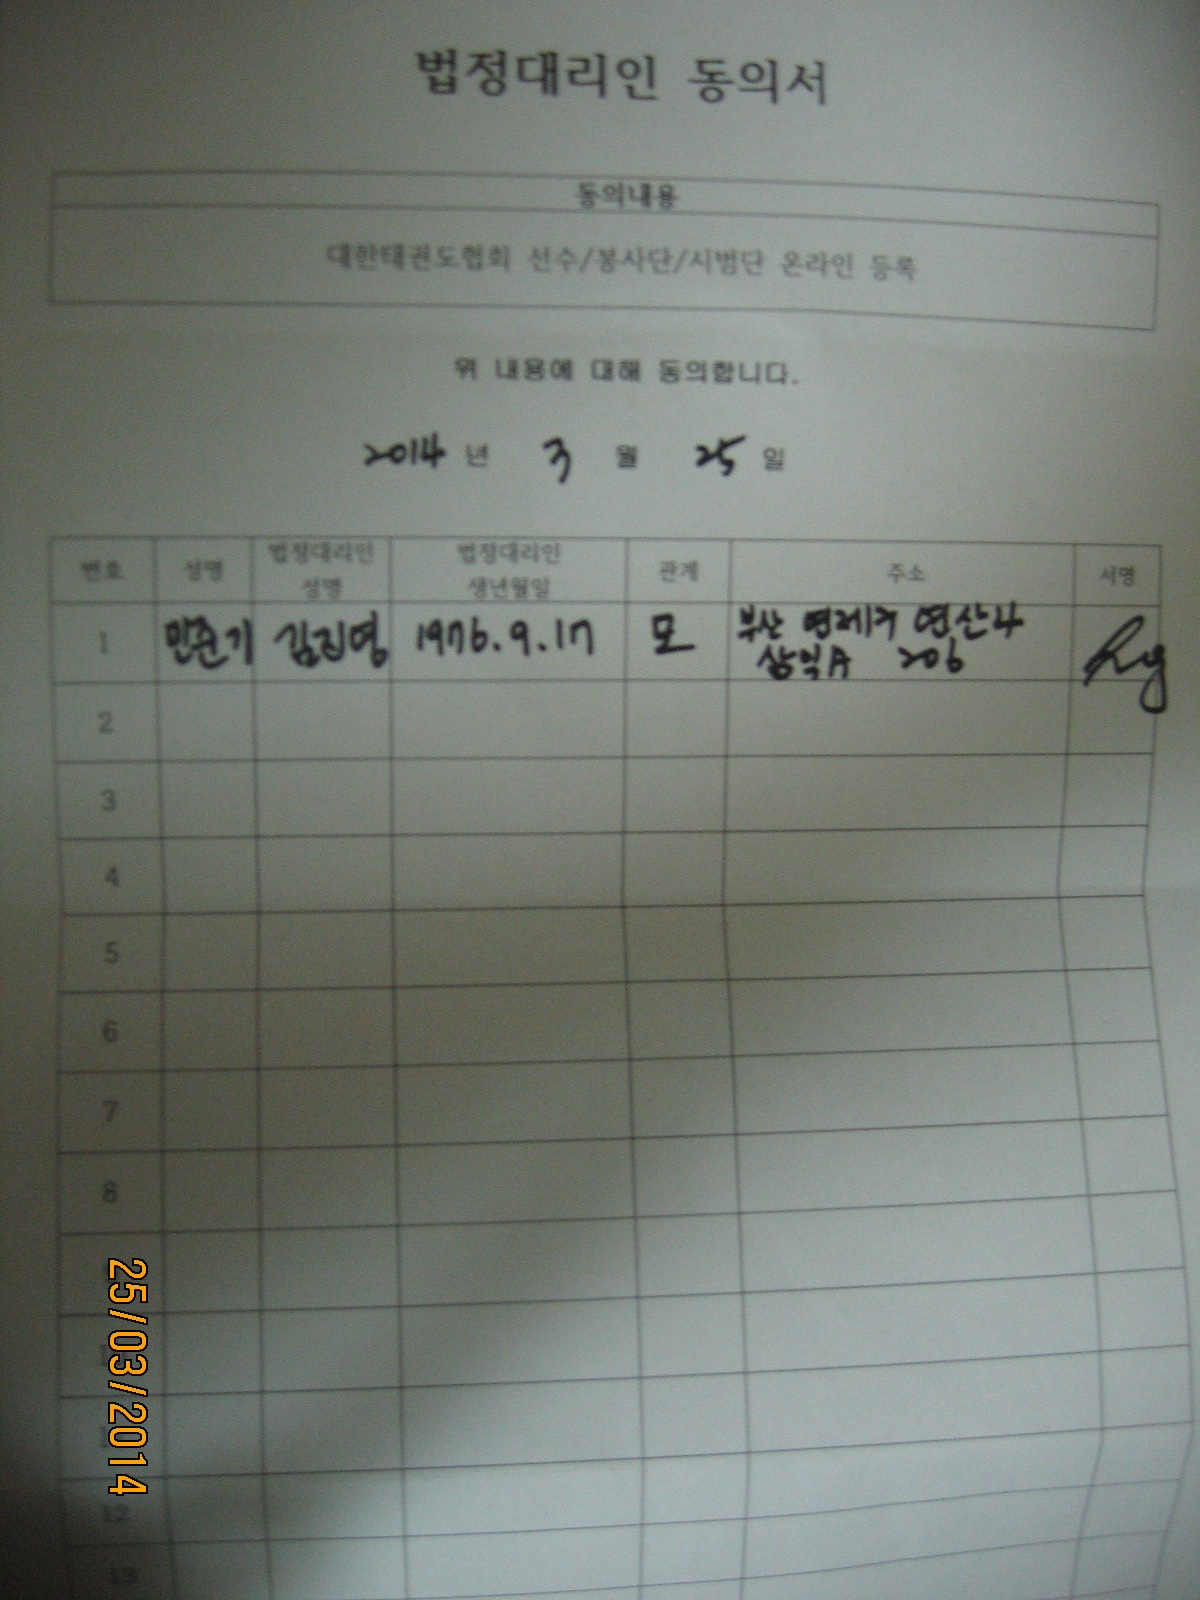 법정대리인 동의서
동의내용
대한태권도협회 선수/봉사단/시범단 온라인 등록
위 내용에 대해 동의합니다.
2014 년 3 월 25 일
번호 성명 법정대리인 성명 법정대리인 생년월일 관계 주소 서명
1 민준기 김진영 1976.9.17 모 부산 연제구 연산4
상익A 206
2
3
4
5
6
7
8
12
13
25/03/2014